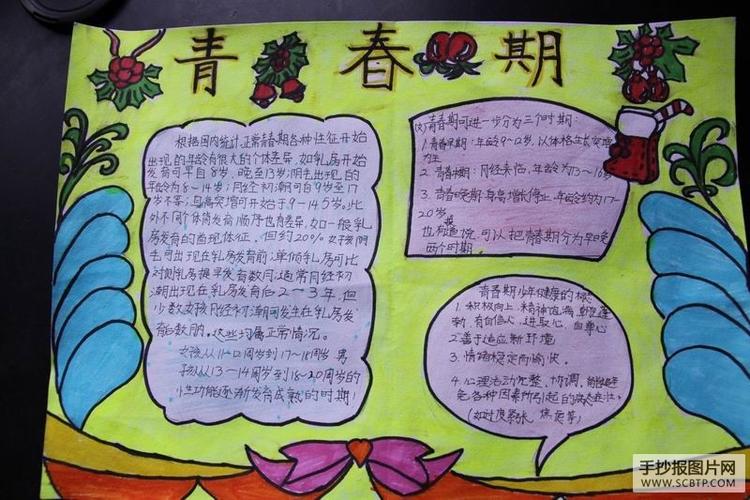 青春期
根据国内统计正常青春期各种性征开始
出现的年龄有很大的个体差异，如乳房开始
发育可早自8岁，晚至13岁；阴毛出现的
年龄为8-14岁；月经初潮可自9岁至17
岁不等；身高突增可开始于9-14.5岁。此
外不同个体间发育顺序也有差异，如一般乳
房发育的出现体征，但约20%女孩阴
毛可出现在乳房发育前；单侧乳房可比
对侧乳房提早发育数月；通常月经初
潮出现在乳房发育后2-3年，但
少数女孩月经初潮可发生在乳房发
育后数月。这些均属正常情况。
女孩从11-12周岁到17-18周岁 男
孩从13-14周岁到18-20周岁的
性功能逐渐发育成熟的时期！
青春期可进一步分为三个时期：
1.青春早期：年龄9-12岁，以体格生长突增
为主
2.青春中期：月经来临，年龄为13-16岁
3.青春晚期：身高增长停止，年龄约为17-
20岁。
也有笼统，可以把青春期分为早晚
两个时期
青春期少年健康的标
1.积极向上，精神饱满，朝气蓬
勃，有自信心，进取心，自尊心
2.善于适应新环境
3.情绪稳定而愉快。
4.心理活动完整、协调，能够避
免各种因素所引起的病态症状，
（如过度紧张、焦虑等）
手抄报图片网
WWW.SCBTP.COM